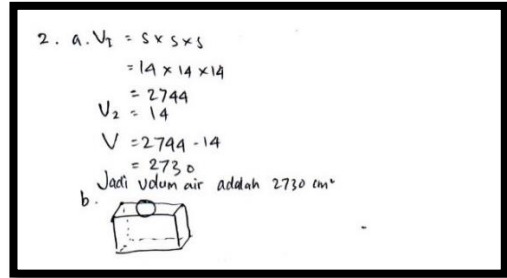 2. a. V₁ = s x s x s
= 14 x 14 x 14
= 2744
V₂ = 14
V = 2744 - 14
= 2730
Jadi volum air adalah 2730 cm²
b.